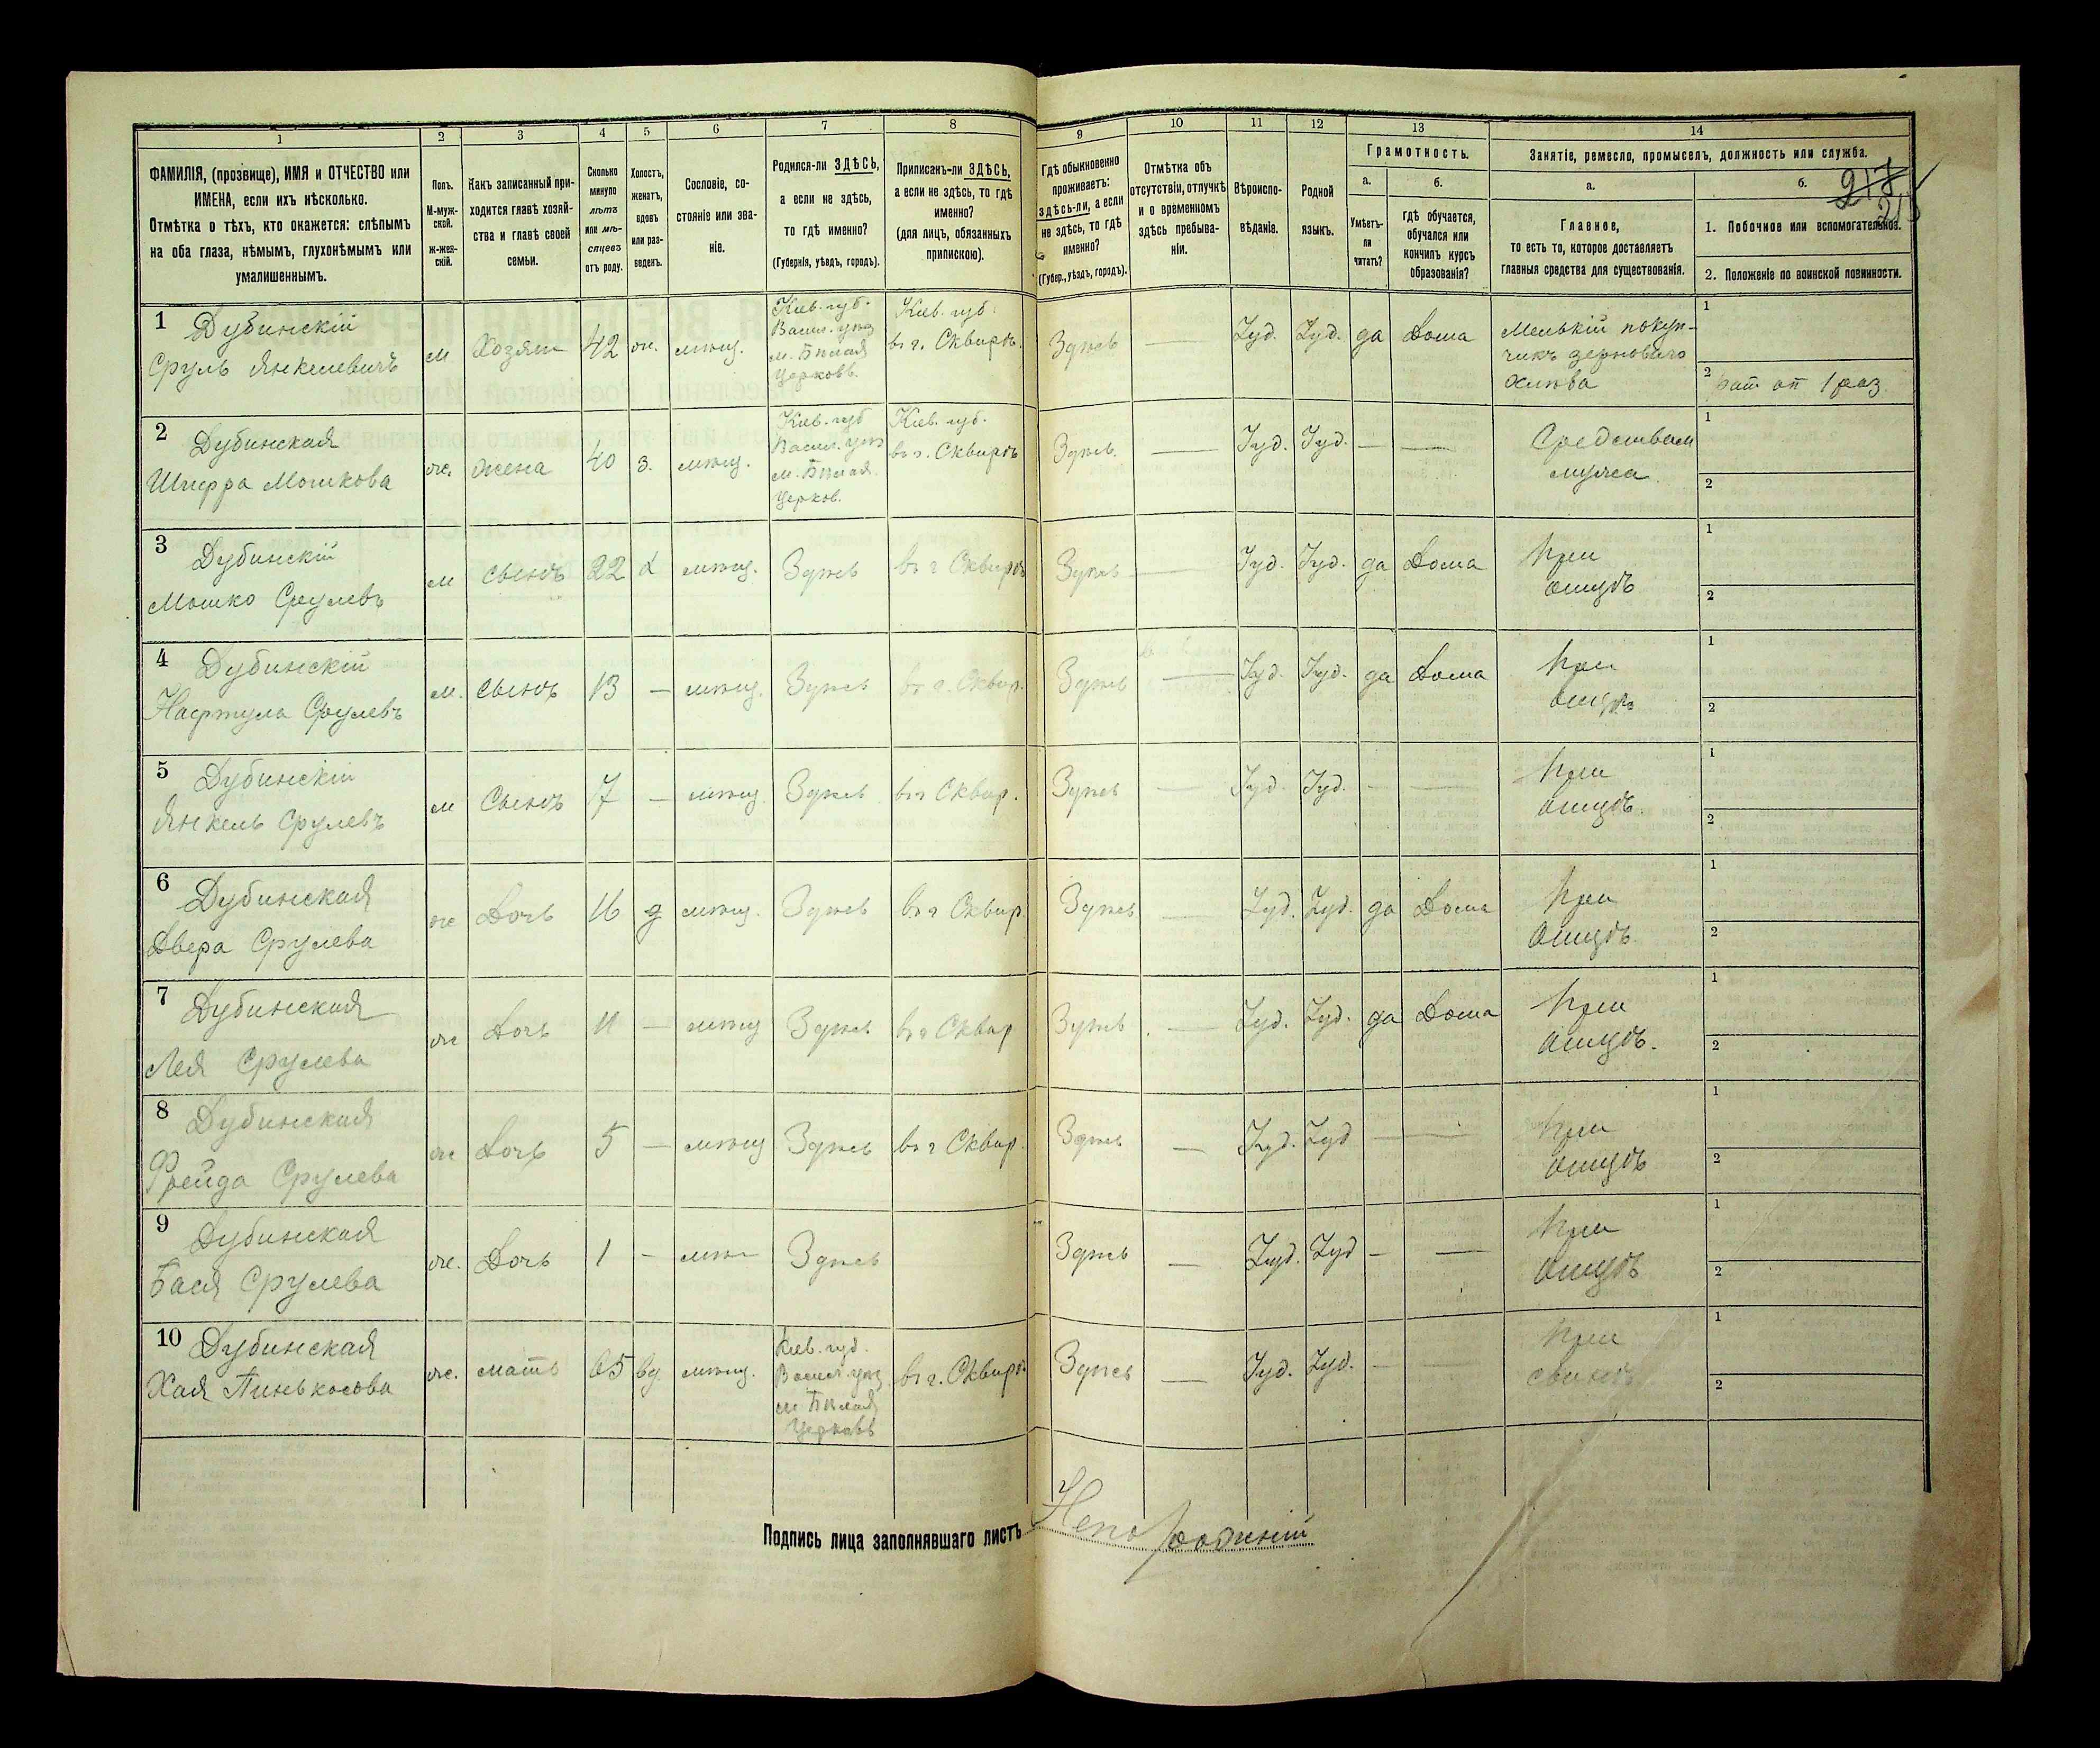 1
2
3
4
5
6
7
8
9
10
11
12
13
14
ФАМИЛІЯ, (прозвище), ИМЯ и ОТЧЕСТВО или
ИМЕНА, если ихъ нѣсколько.
Отмѣтка о тѣхъ, кто окажется: слѣпымъ
на оба глаза, нѣмымъ, глухонѣмымъ или
умалишеннымъ.
Полъ.
М-муж-
ской.
ж-жен-
скій.
Какъ записанный при-
ходится главѣ хозяй-
ства и главѣ своей
семьи.
Сколько
минуло
лѣтъ
или мѣ-
сяцевъ
отъ роду.
Холостъ,
женатъ,
вдовъ
или раз-
веденъ.
Сословіе, со-
стояніе или зва-
ніе.
Родился-ли ЗДѢСЬ,
а если не здѣсь,
то гдѣ именно?
(Губернія, уѣздъ, городъ).
Приписанъ-ли ЗДѢСЬ,
а если не здѣсь, то гдѣ
именно?
(для лицъ, обязанныхъ
припискою).
Гдѣ обыкновенно
проживаетъ:
здѣсь-ли, а если
не здѣсь, то гдѣ
именно?
(Губер., уѣздъ, городъ).
Отмѣтка объ
отсутствіи, отлучкѣ
и о временномъ
здѣсь пребыва-
ніи.
Вѣроиспо-
вѣданіе.
Родной
языкъ.
Грамотность.
а.
Умѣетъ-
ли
читать?
б.
гдѣ обучается,
обучался или
кончилъ курсъ
образованія?
Занятіе, ремесло, промыселъ, должность или служба.
а.
Главное,
то есть то, которое доставляетъ
главныя средства для существованія.
б.
217
215
1. Побочное или вспомогательное.
2. Положеніе по воинской повинности.
1 Дубинскій
Сруль Янкелевичъ
м
Хозяин
42
ж.
мѣщ.
Кіев. губ.
Васил. уѣз
м. Бѣлая
Церковь.
Кіев. губ.
въ г. Сквирѣ.
Здѣсь
—
Іуд.
Іуд.
да
Дома
Мелькій покуп-
чикъ зерноваго
хлѣба
1
2
2 Дубинская
Шифра Мошкова
ж.
жена
40
з.
мѣщ.
Кіев. губ
Васил. уѣз
м. Бѣлая
Церков.
Кіев. губ.
въ г. Сквирѣ
Здѣсь.
—
Іуд.
Іуд.
—
—
Средствам
мужа
1
2
3 Дубинскій
Мошко Срулевъ
м
сынъ
22
х
мѣщ.
Здѣсь
въ г Сквирѣ
Здѣсь
—
Іуд.
Іуд.
да
Дома
при
отцѣ
1
2
4 Дубинскій
Нафтула Срулевъ
м.
сынъ
13
—
мѣщ.
Здѣсь
въ г. Сквир.
Здѣсь
—
Іуд.
Іуд.
да
Дома
при
отцѣ
1
2
5 Дубинскій
Янкель Срулевъ
м
Сынъ
7
—
мѣщ.
Здѣсь
въ г Сквир.
Здѣсь
—
Іуд.
Іуд.
-
—
при
отцѣ.
1
2
6 Дубинская
Двера Срулева
ж
Дочь
16
д
мѣщ.
Здѣсь
въ г Сквир.
Здѣсь
—
Іуд.
Іуд.
да
Дома
при
отцѣ.
1
2
7 Дубинская
Лея Срулева
ж
Дочь
11
—
мѣщ
Здѣсь
въ г Сквир
Здѣсь.
—
Іуд.
Іуд.
да
Дома
при
отцѣ.
1
2
8 Дубинская
Фрейда Срулева
ж
Дочь
5
—
мѣщ
Здѣсь
въ г Сквир.
Здѣсь
—
Іуд.
Іуд
—
—
при
отцѣ
1
2
9 Дубинская
Бася Срулева
ж.
Дочь
1
-
мѣщ
Здѣсь
Здѣсь
—
Іуд.
Іуд
-
—
при
отцѣ
1
2
10 Дубинская
Хая Пинькосова
ж.
мать
65
вд
мѣщ.
Кіев. губ.
Васил. уѣз
м Бѣлая
Церковь
въ г. Сквирѣ.
Здѣсь
—
Іуд.
Іуд.
-
—
при
сынѣ
1
2
Подпись лица заполнявшаго листъ